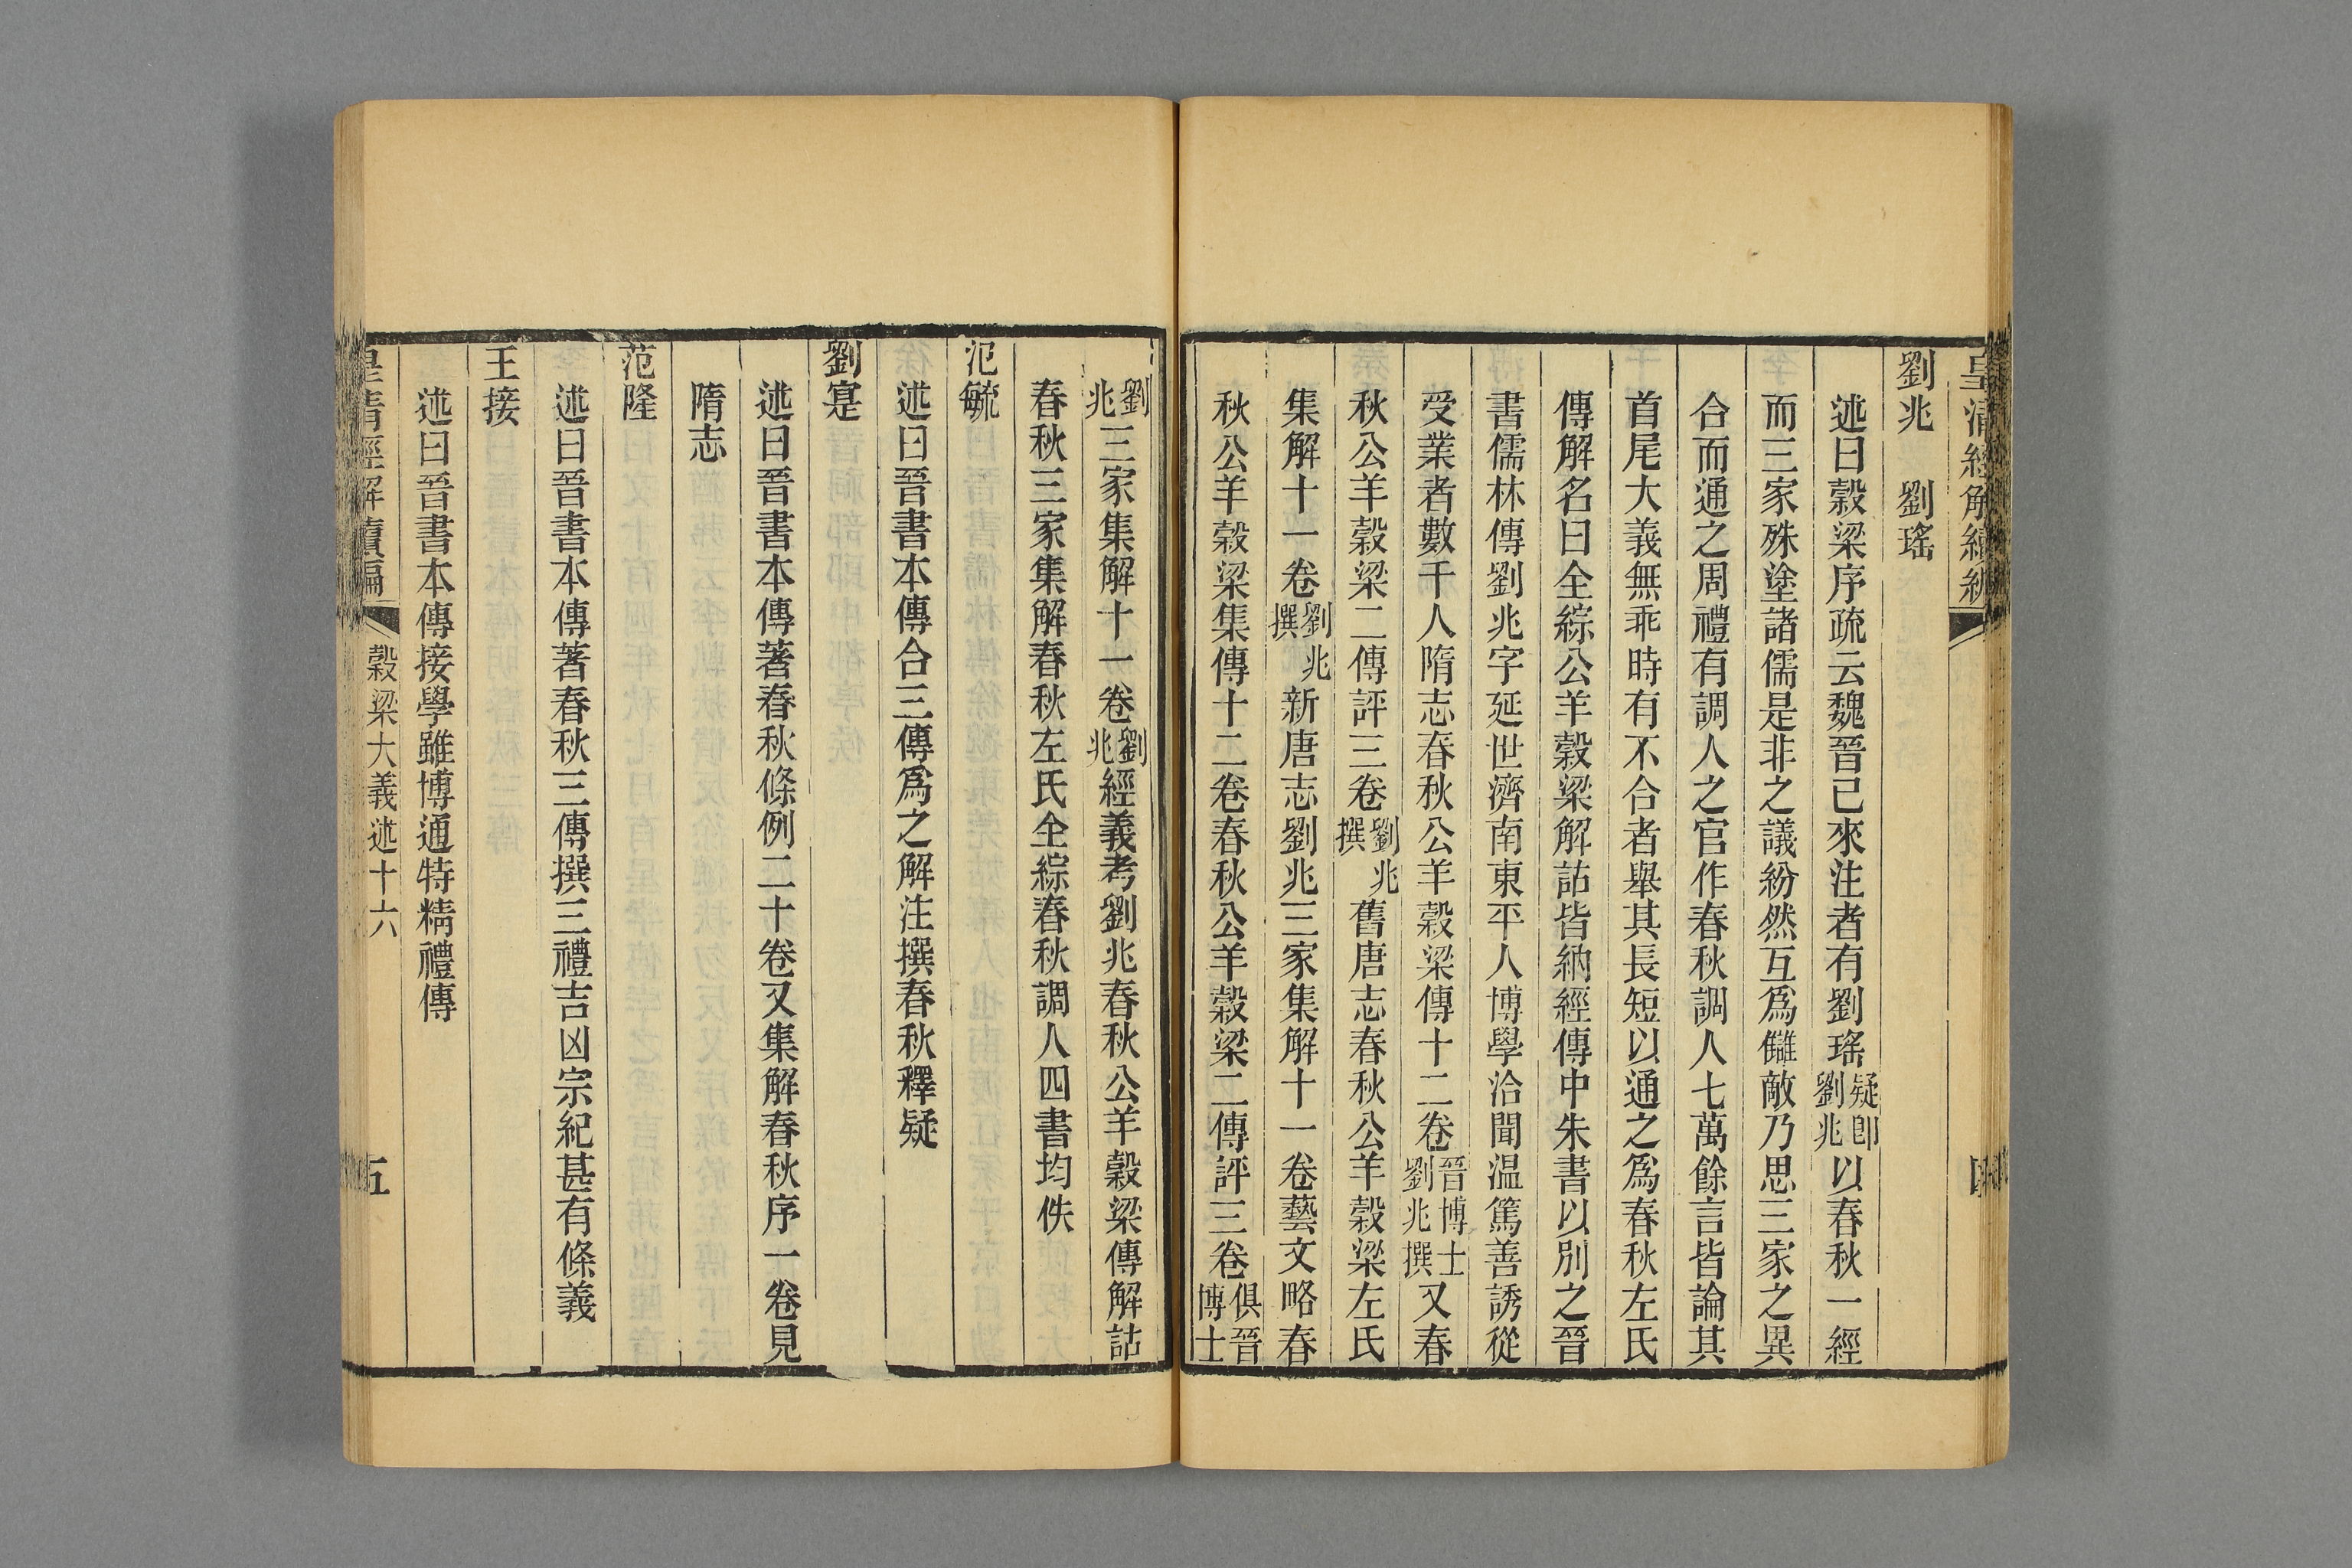 皇清經解續編
劉兆　劉瑤
述曰穀梁序疏云魏晉已來注者有劉瑤疑卽劉兆以春秋一經
而三家殊塗諸儒是非之議紛然互爲讎敵乃思三家之異
合而通之周禮有調人之官作春秋調人七萬餘言皆論其
首尾大義無乖時有不合者舉其長短以通之爲春秋左氏
傳解名曰全綜公羊穀梁解詁皆納經傳中朱書以別之晉
書儒林傳劉兆字延世濟南東平人博學洽聞溫篤善誘從
受業者數千人隋志春秋公羊穀梁傳十二卷晉博士劉兆撰又春
秋公羊穀梁二傳評三卷劉兆撰舊唐志春秋公羊穀梁左氏
集解十一卷劉兆撰新唐志劉兆三家集解十一卷藝文略春
秋公羊穀梁集傳十二卷春秋公羊穀梁二傳評三卷俱晉博士
劉兆三家集解十一卷劉兆經義考劉兆春秋公羊穀梁傳解詁
春秋三家集解春秋左氏全綜春秋調人四書均佚
氾毓
述曰晉書本傳合三傳爲之解注撰春秋釋疑
劉寔
述曰晉書本傳著春秋條例二十卷又集解春秋序一卷見
隋志
范隆
述曰晉書本傳著春秋三傳撰三禮吉凶宗紀甚有條義
王接
述曰晉書本傳接學雖博通特精禮傳
皇清經解續編　穀梁大義述十六　五